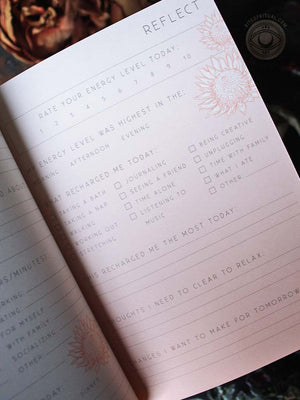 REFLECT
RATE YOUR ENERGY LEVEL TODAY:
1 2 3 4 5 6 7 8 9 10
ENERGY LEVEL WAS HIGHEST IN THE:
AFTERNOON EVENING
RECHARGED ME TODAY:
TAKING A BATH
TAKING A NAP
WALKING
WORKING OUT
STRETCHING
JOURNALING
SEEING A FRIEND
TIME ALONE
LISTENING TO
MUSIC
BEING CREATIVE
UNPLUGGING
TIME WITH FAMILY
WHAT I ATE
OTHER
RECHARGED ME THE MOST TODAY
I NEED TO CLEAR TO RELAX.
I WANT TO MAKE FOR TOMORROW
FOR MYSELF
WITH FAMILY
SOCIALIZING
OTHER